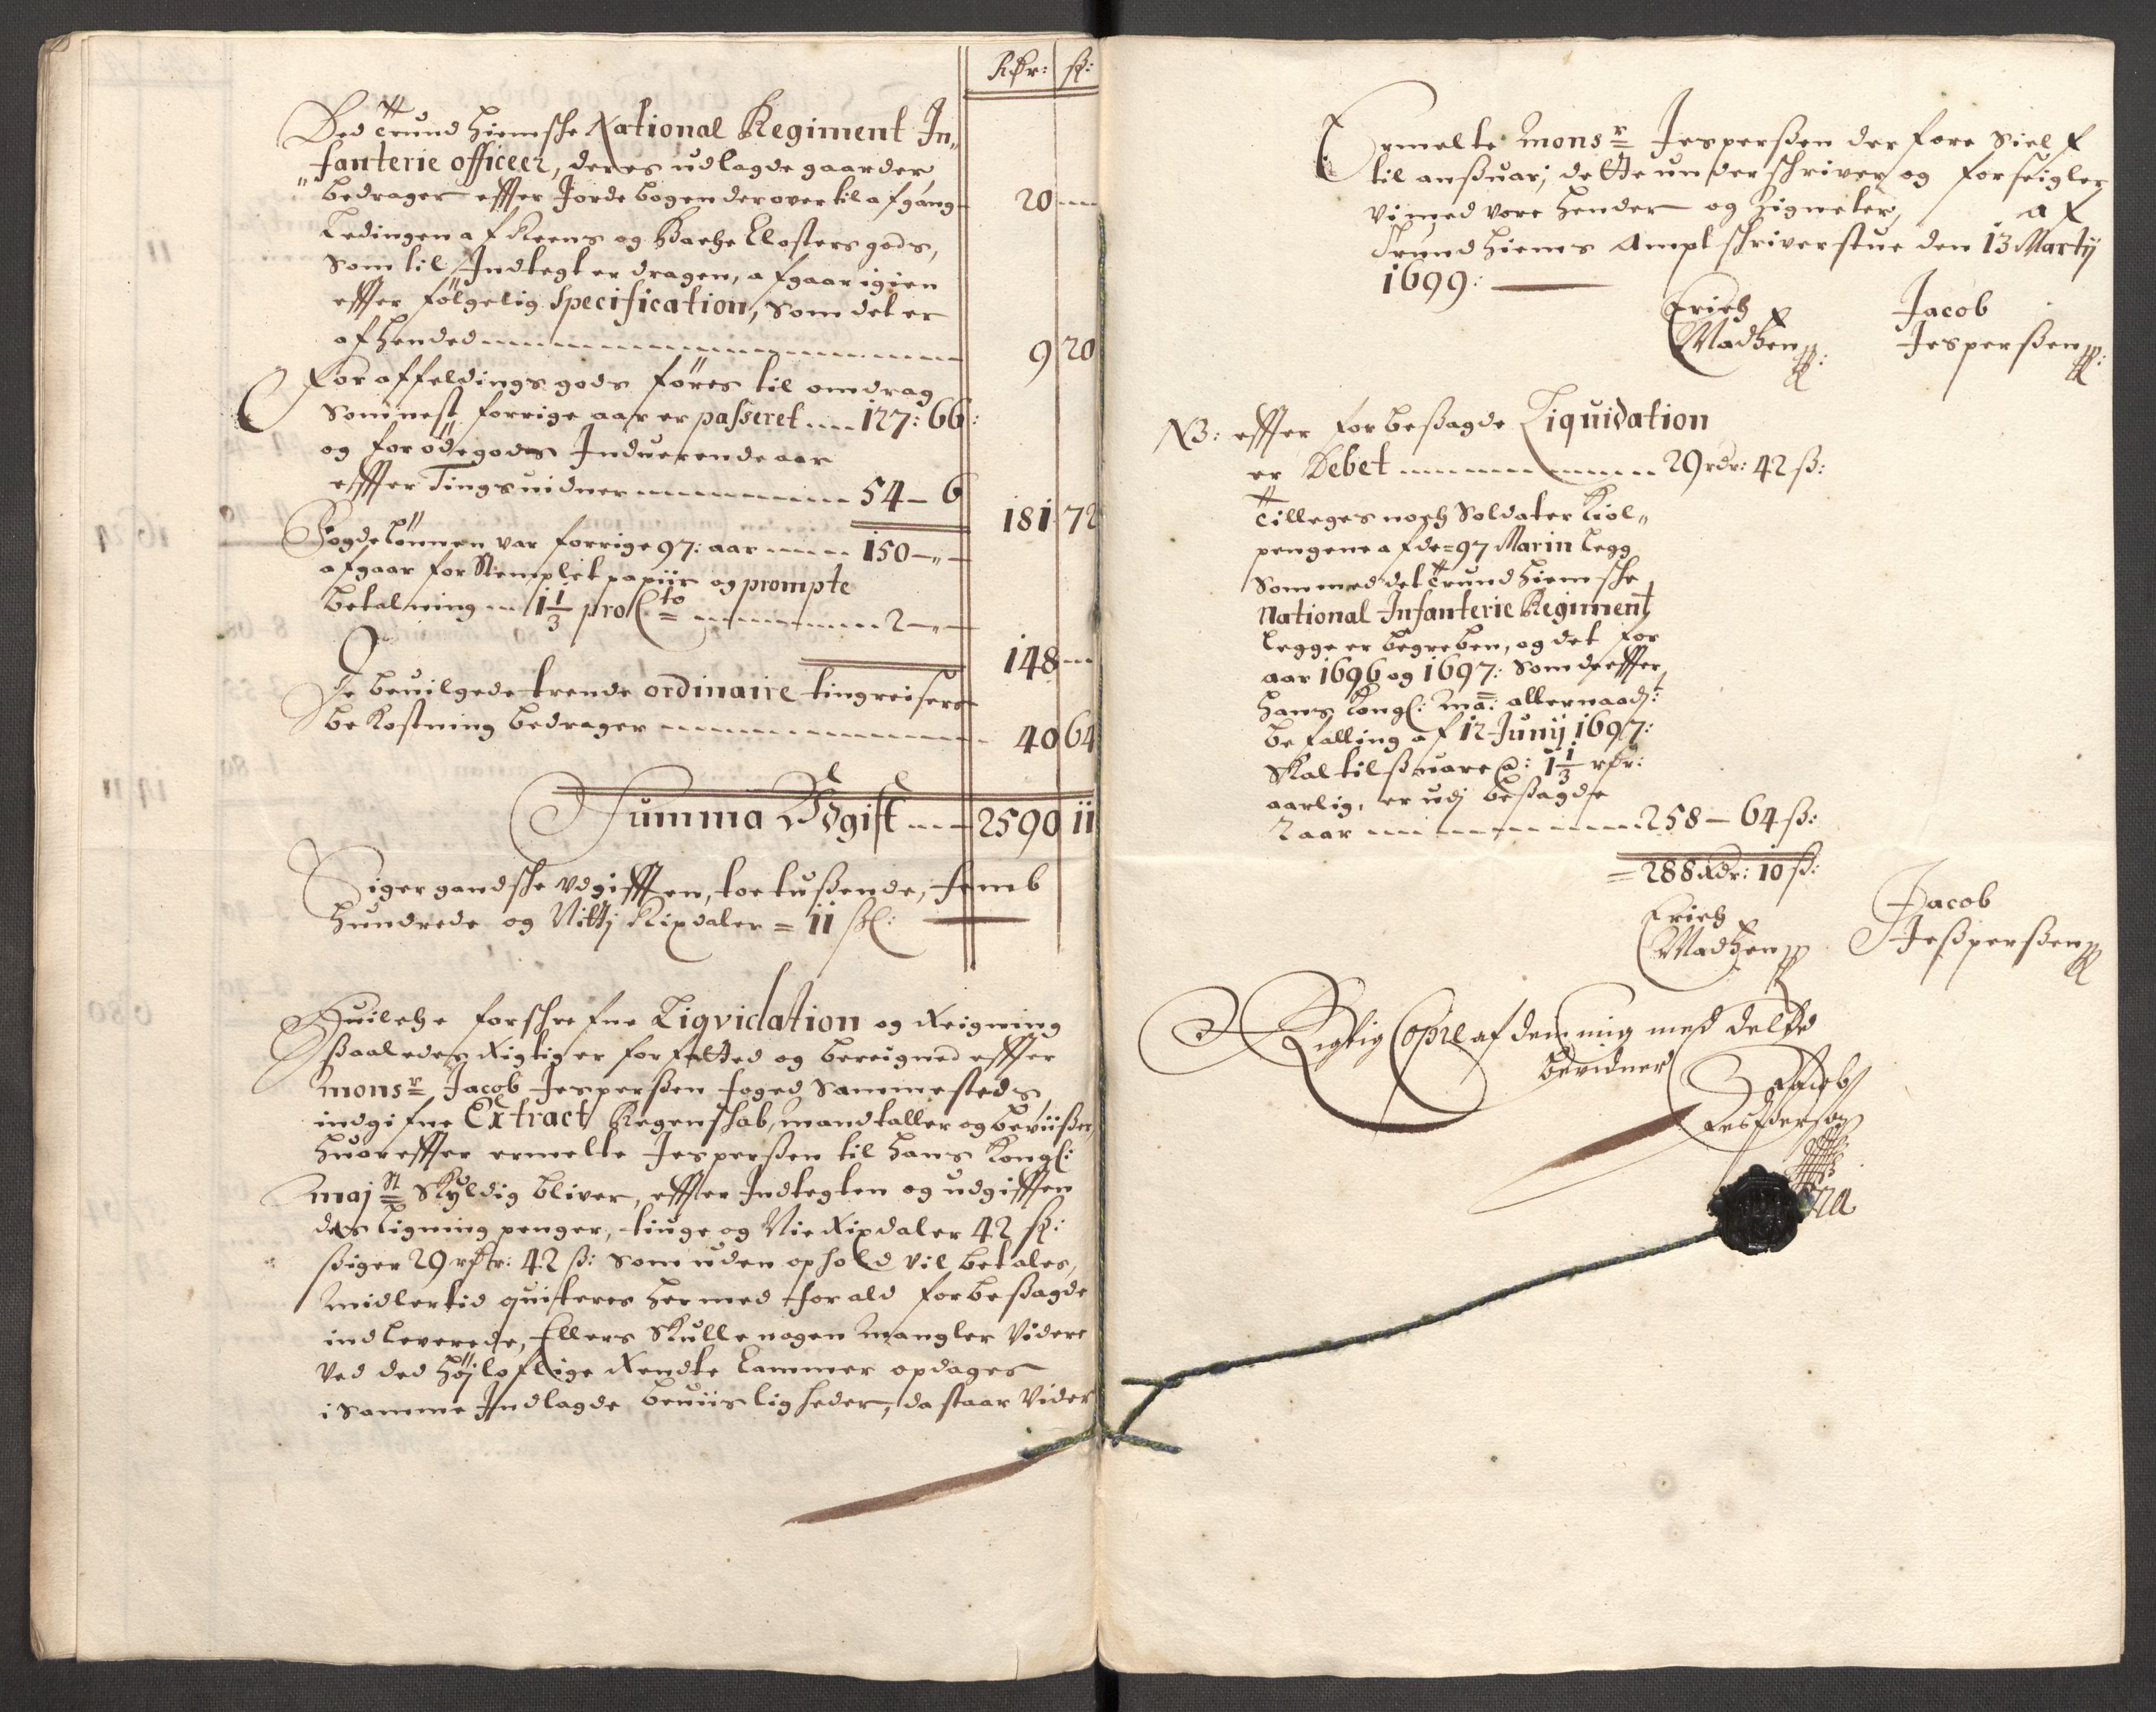 Rdr: ß:
Ded Trundhiemske National Regiment In„
„fanterie officeer, deres udlagde gaarder,
bedrager effter Jordebogen derover til afgang 20 –
Ledingen af Reens og Bache Closters gods,
som til Indtegt er dragen, afgaar igien
effter følgelig Specification, som det er
afhended 9 20
For affeldings gods føres til omdrag
som nest forrige aar er passeret 127: 66:
og for ødegods Induerende aar
effter Tingsvidner 54 – 6
181 72
Fogdelønnen var forrige 97: aar 150 – „ –
afgaar for Stemplet papiir og prompte
betalning 1 1/3 pro Cto 2 – „ –
148 –
De bevilgede trende ordinaire tingreisers
bekostning bedrager 40 64
Summa Udgift 2590 11
Siger gandske udgifften, toe tußende, femb
hundrede og Nitti Rixdaler = 11 ßl:
Huilche forschrefne Liqvidation og Reigning
ßaaledes Rigtig er forfatted og bereigned effter
Monsr Jacob Jesperßen foged sammesteds
indgifne Extract Regenskab, mandtaller og beviißer,
huoreffter ermelte Jesperßen til hans Kongl:
Majst Skyldig bliver, effter Indtegten og udgifften
des ligning penger, tiuge og Nie Rixdaler 42 ß:
ßiger 29 rdr: 42 ß: som uden ophold vil betales,
Midlertid quiteres hermed for ald forbeßagde
indleverede, Ellers Skulle nogen Mangler Videre
Ved ded høyloflige Rendte Cammer opdages
i samme Indlagde beviisligheder, da staar Vider
Ermelte Monsr Jesperßen derfore Sielf
til anßuar; dette underskriver og forseigler
Vi med vore hender og Zigneter, af
Trundhiems Amptskriverstue den 13 Marty
1699:
Erich Jacob
Madßen Jesperßen
NB: effter forbeßagde Liquidation
er Debet 29 rdr: 42 ß:
Tilleges noch Soldater Kiol„
pengene af de = 97 Marin legg
som med det Trundhiemske
National Infanterie Regiment
legge er begreben, og det for
aar 1696 og 1697: som de effter
hans Kongl: Ma: allernaad:
befalling af 12 Junij 1697:
Skal tilßuare @: 1 1/3 rdr:
aarlig, er udj beßagde
2 aar 258 – 64 ß:
= 288 Rdr: 10 ß:
Erich Jacob
Madßen Jeßperßen
Rigtig Copie af den mig med Delted
bevidner
Jacob
Jesperßen